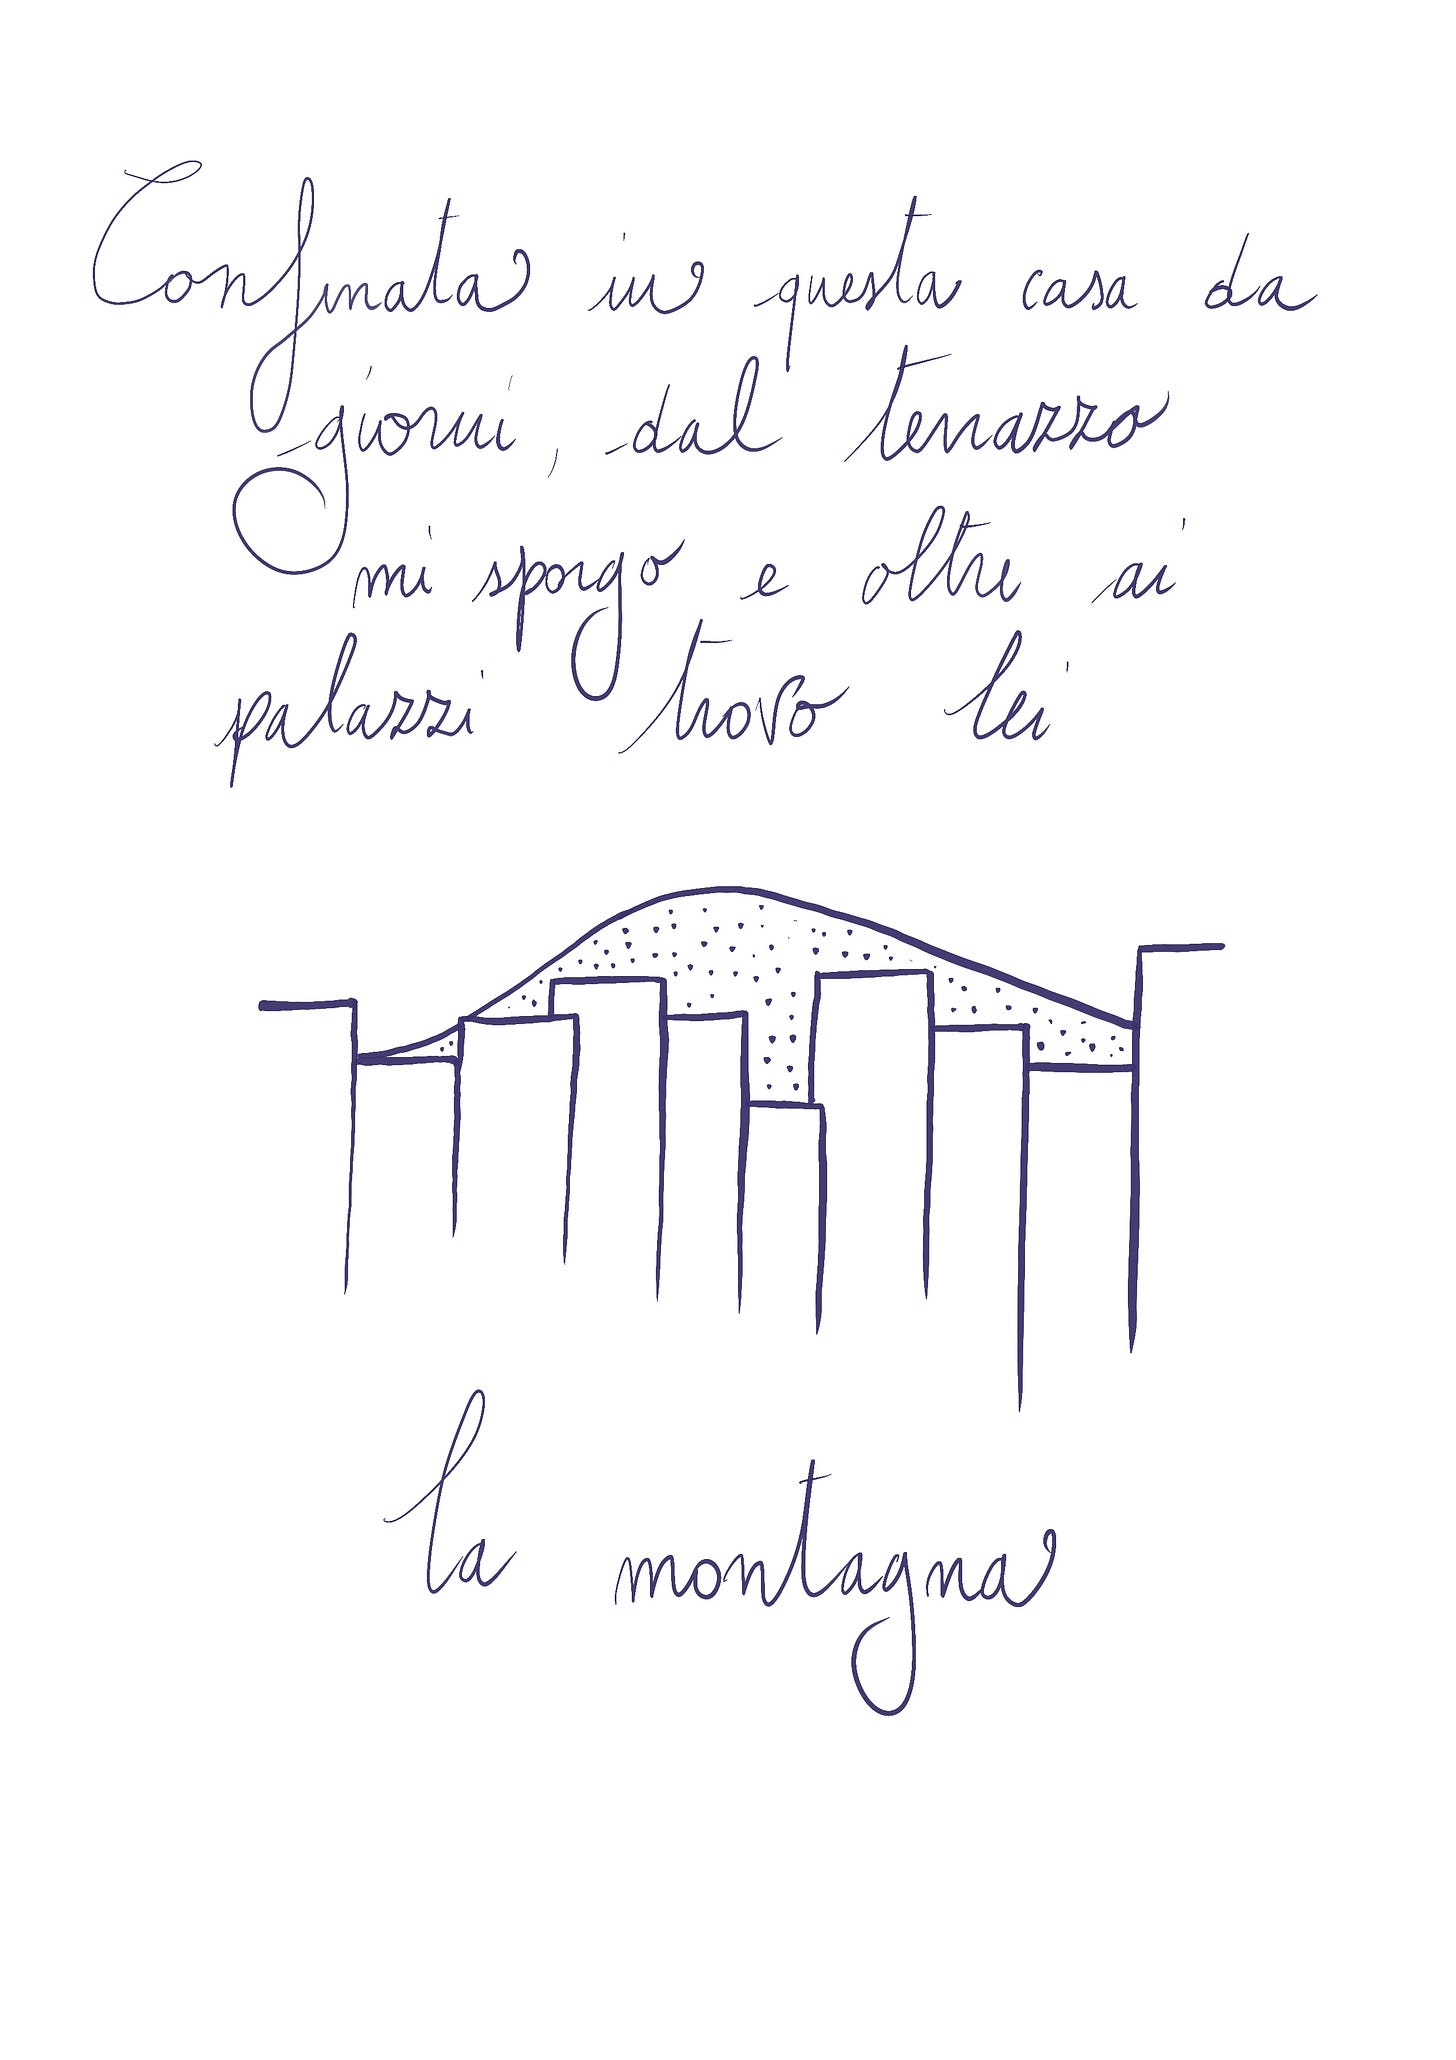 Confinata in questa casa da
giorni, dal terrazzo
mi sporgo e oltre ai
palazzi trovo lei
la montagna